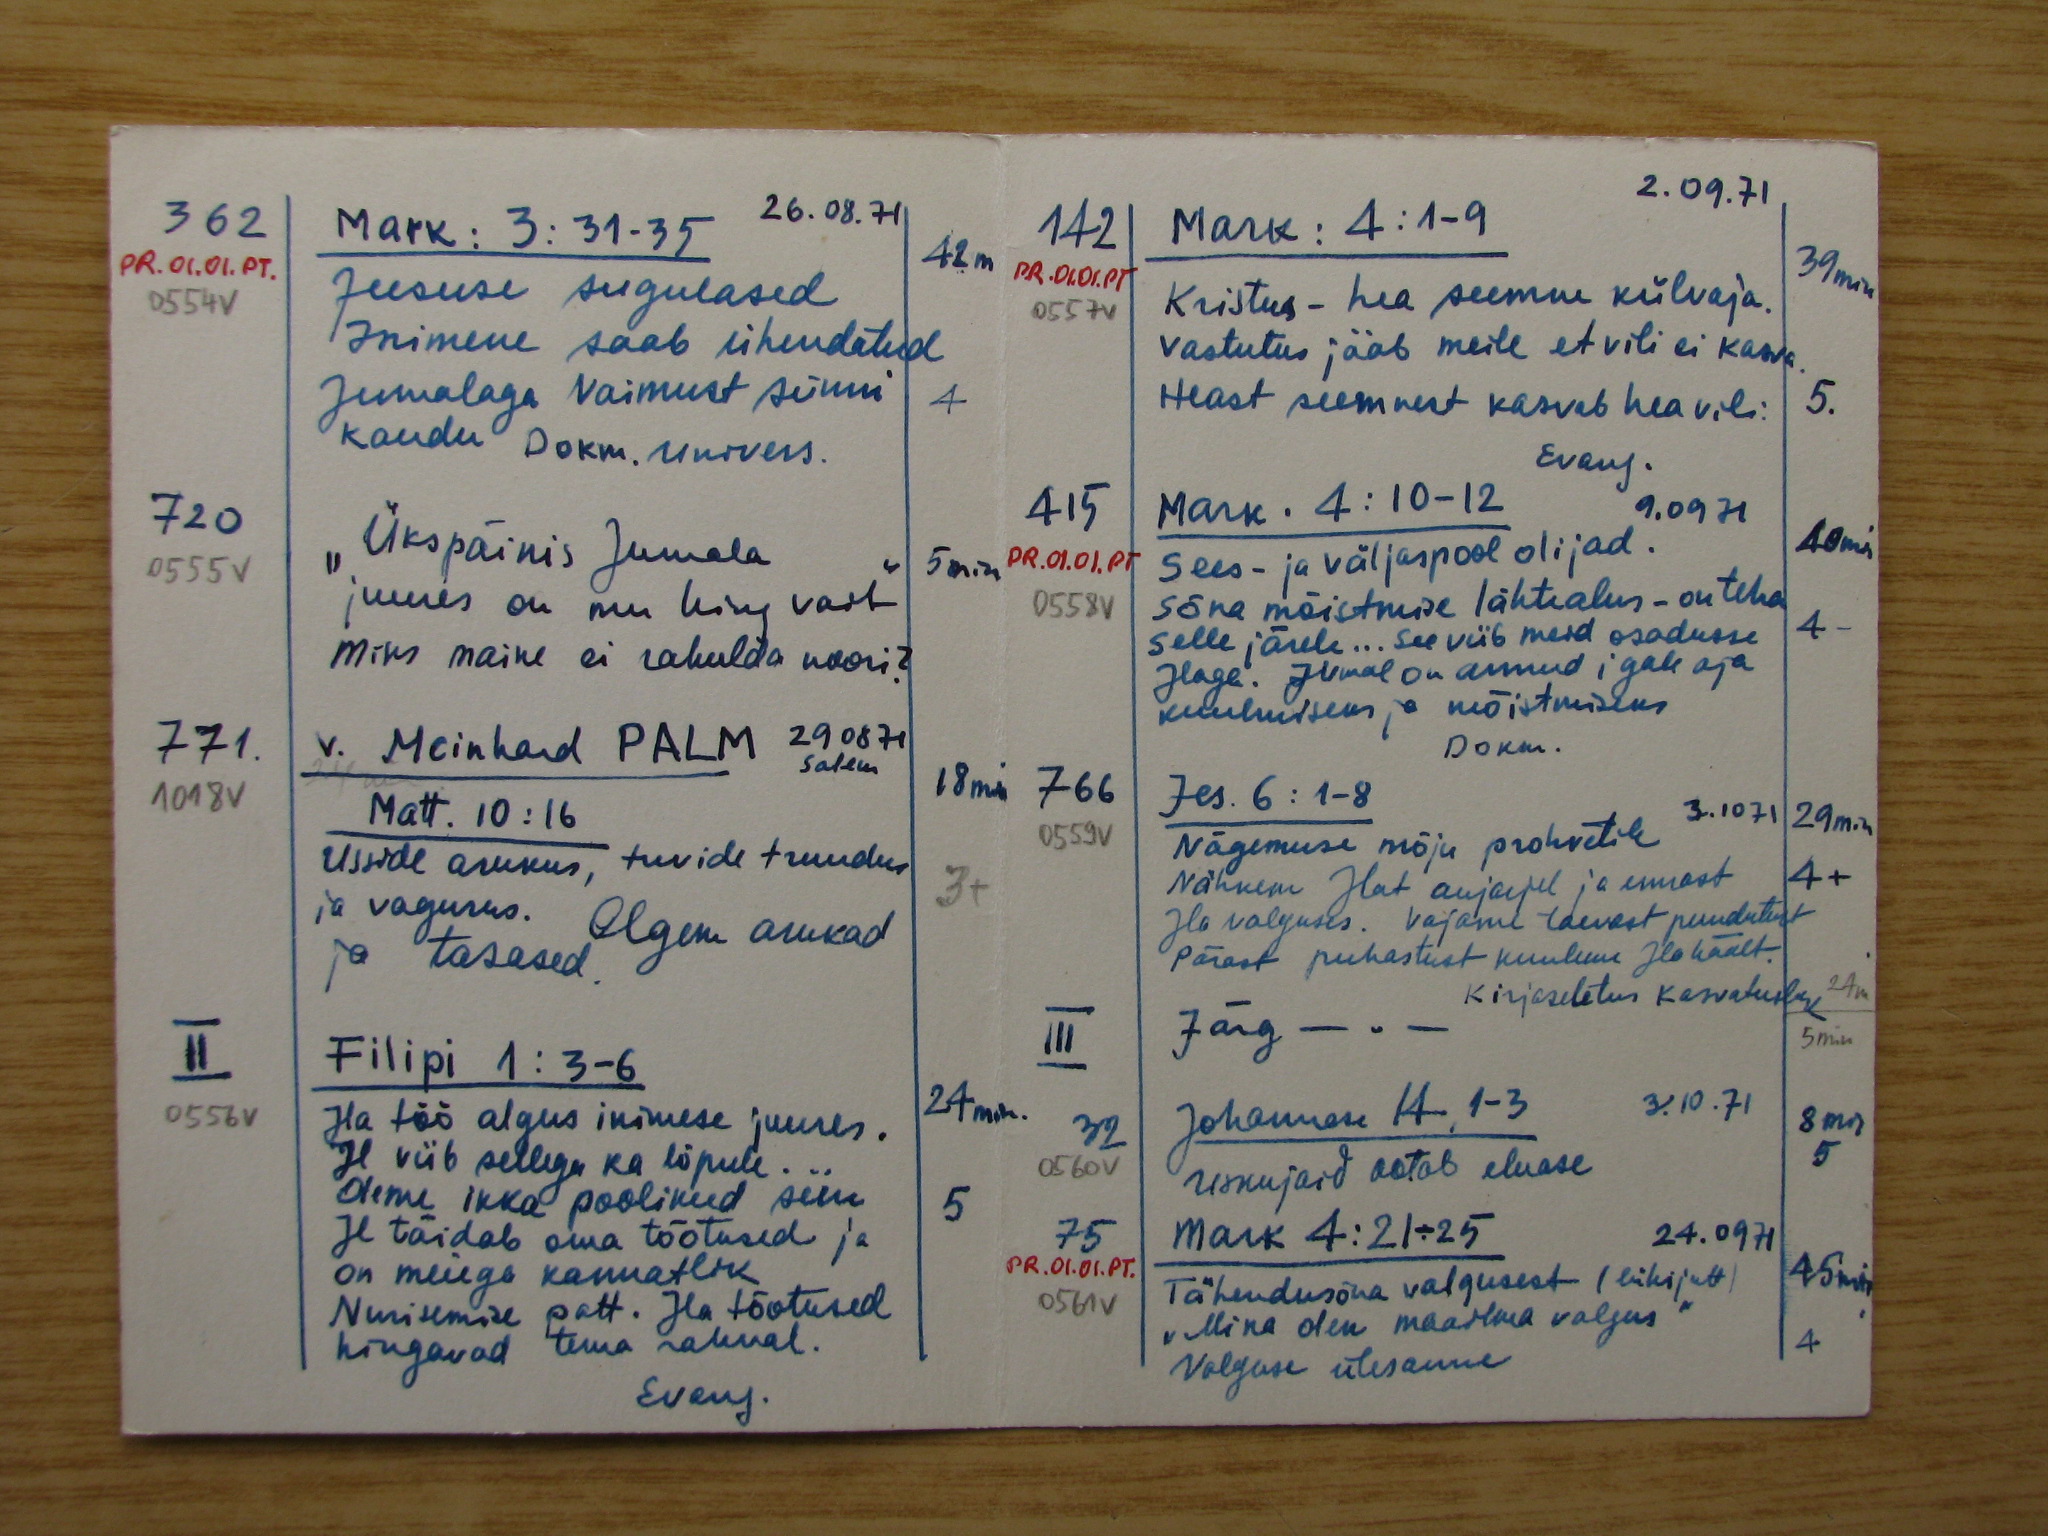 362 Mark: 3:31-35 26.08.71
PR.01.01.PT. 42m
0554V Jeesuse sugulased
Inimene saab ühendatud
Jumalaga Vaimust sünni 4
kaudu Dokm. Univers.
720 „Ükspäinis Jumala
0555V juures on mu hing vait“ 5min
Miks maine ei rahulda noori?
771. v. Meinhard PALM 290871
Salem
1018V Matt. 10:16 18min
Usside arukus, tuvide truudus 3+
ja vagurus. Olgem arukad
ja tasased.
II Filipi 1:3-6
0556V Jla töö algus inimese juures. 24min.
Jl viib sellega ka lõpule...
Oleme ikka poolikud siin 5
Jl täidab oma tõotused ja
on meiega kannatlik
Nurisemise patt. Jla tõotused
hingavad tema rahval.
Evang.
142 Mark: 4:1-9 2.09.71
PR.01.01.PT 39min
0557V Kristus - hea seemne külvaja.
Vastutus jääb meile et vili ei kasva.
Heast seemnest kasvab hea vili: 5.
Evang.
415 Mark. 4:10-12 9.0971
PR.01.01.PT Sees- ja väljaspool olijad. 40min
0558V Sõna mõistmise lähtealus - on teha
Selle järele... See viib meid osadusse 4-
Jlaga. Jumal on annud igale aja
kuulmiseks ja mõistmiseks
Dokm.
766 Jes. 6:1-8 3.1071 29min
0559V Nägemuse mõju prohvetile
Nähkem Jlat aujärjel ja ennast 4+
Jla valguses. Vajame taevast puudutust
Pärast puhastust kuuleme Jla häält.
Kirjaseletus kasvatuslik 24m
III Järg — . — 5min
32 Johannese 14, 1-3 3.10.71 8min
0560V Usklujaid ootab eluase 5
75 Mark 4:21÷25 24.0971
PR.01.01.PT. 45min
0561V Tähendusõna valgusest (lühijutt)
„Mina olen maailma valgus“ 4
Valguse ülesanne